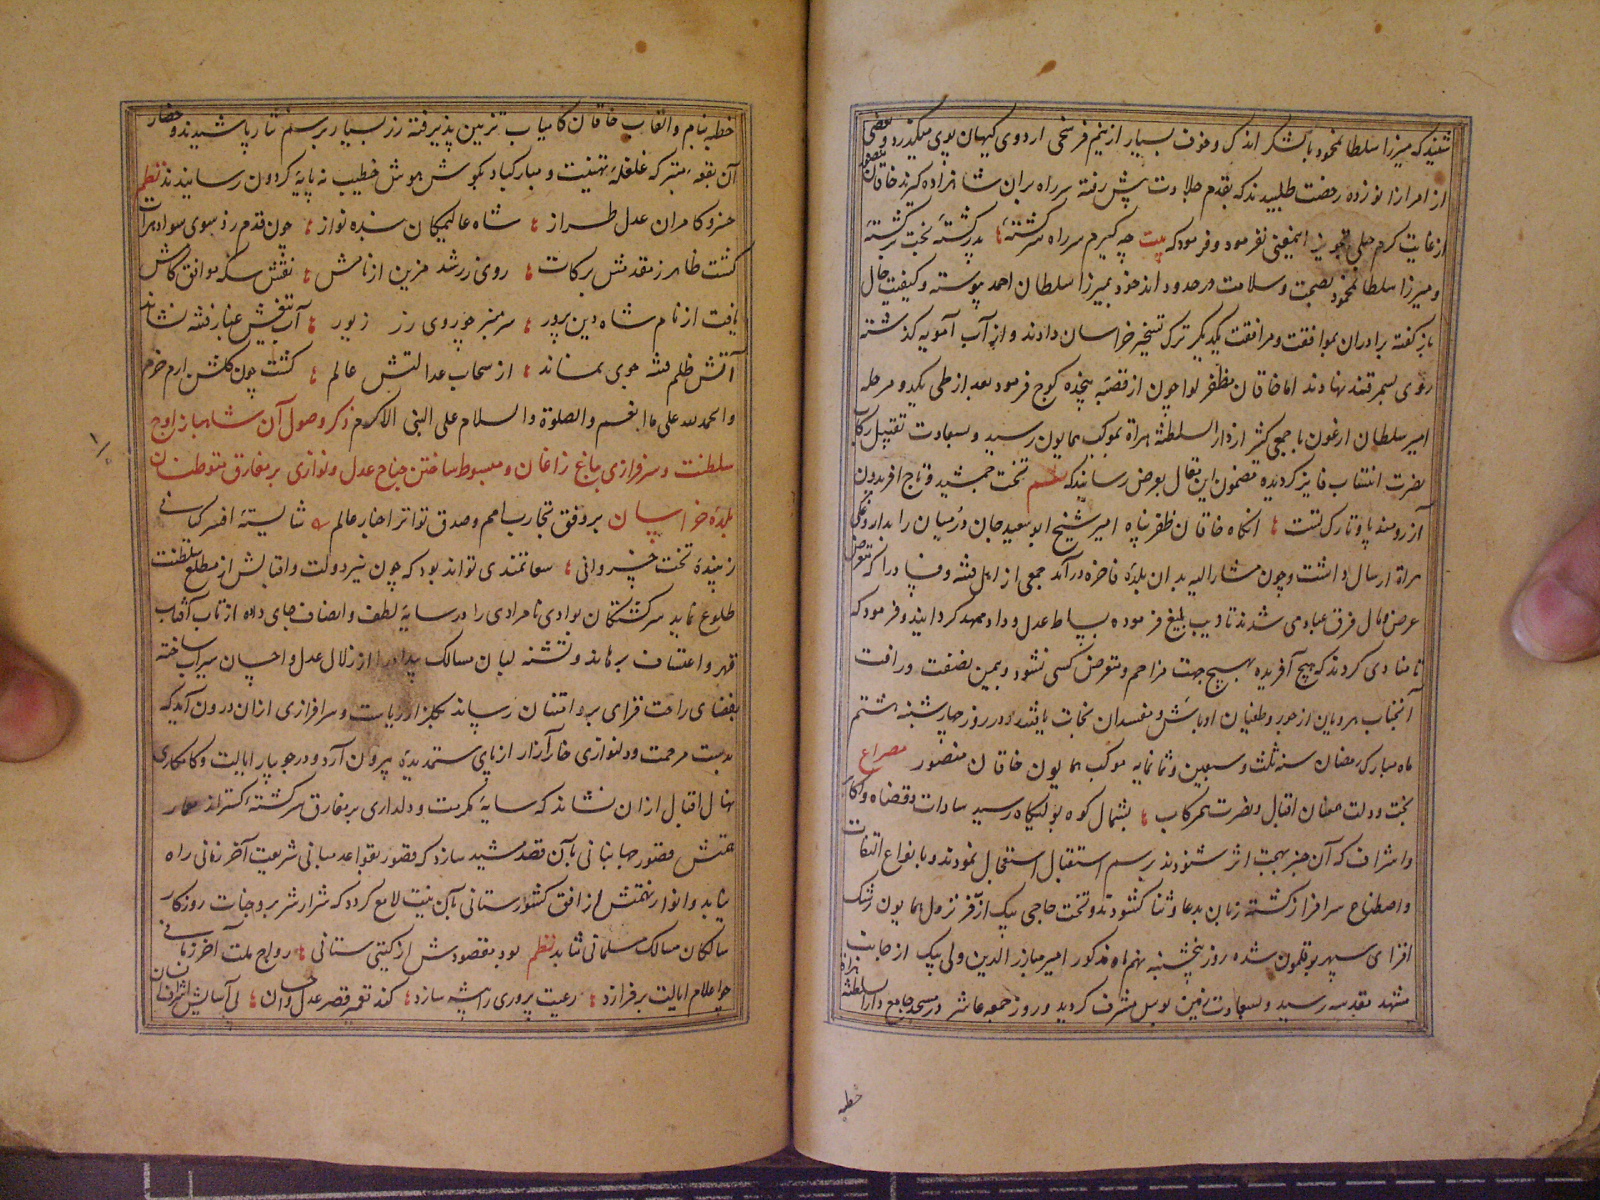 شنید که میرزا سلطانمحمود با لشکر اندک و خوف بسیار از نیم فرسخی اردوی کیهان پوی میکذرد و بعضی
از امرا زانو زده رخصت طلبیدند که بقدم جلادت پیش رفته سر راه بران شاهزاده کیرند خاقان منصور
از غایت کرم جبلی تجویز اینمعنی نفرمود و فرمود که بیت چه کیرم سر راه سرکشته پدر کشته بخت برکشته
و میرزا سلطانمحمود بصحت و سلامت در حدود اندخود بمیرزا سلطان احمد پیوسته و کیفیت حال
باز کفته برادران بموافقت و مرافقت یکدیکر ترک تسخیر خراسان دادند و از آب آمویه کذشته
روی بسمرقند نهادند اما خاقان مظفر لوا چون از قصبه پنجده کوچ فرمود بعد از طی یکدو مرحله
امیر سلطان ارغون با جمعی کثیر از دار السلطنه هراة بموکب همایون رسید و بسعادت تقبیل رکاب
نصرت انتساب فایز کردیده مضمون این مقال بعرض رسانید که نظم تخت جمشید و تاج افریدون
آرزومند پا و تارک تست آنکاه خاقان ظفر پناه امیر شیخ ابو سعید جان درمیان را بداروغکی
هراة ارسال داشت و چون مشار الیه بدان بلده فاخره درآمد جمعی از اهل فتنه و فساد را که متعرض
عرض و مال فرق عباد می شدند تادیب بلیغ فرموده بساط عدل و داد ممهد کردانید و فرمود که
تا منادی کردند که هیچ آفریده بهیچ جهت مزاحم و متعرض کسی نشود و بیمن نصفت و رافت
آنجناب هرویان از جور و طغیان اوباش و مفسدان نجات یافتند و در روز چهارشنبه هشتم
ماه مبارک رمضان سنه ثلث و سبعین و ثمانمایه موکب همایون خاقان منصور مصراع
بخت و دولت همعنان اقبال و نصرت همرکاب بشمال کوه بولیکاه رسید سادات و قضاه و اکابر
و اشراف که آن خبر بهجت اثر شنودند برسم استقبال استعجال نمودند و بانواع التفات
و اصطناع سرافراز کشته زبان بدعا و ثنا کشودند و تخت حاجی بیک از فر نزول همایون رشک
افزای سپهر بوقلمون شده روز پنجشنبه نهم ماه مذکور امیر مبارز الدین ولی بیک از جانب
مشهد مقدسه رسید و بسعادت زمین بوس مشرف کردید و روز جمعه عاشر در مسجد جامع دار السلطنه هراة
خطبه
خطبه بنام و القاب خاقان کامیاب تزیین پذیرفته زر بسیار برسم نثار پاشیدند و حضار
آن بقعه متبرکه غلغله تهنیت و مبارکباد بکوش هوش خطیب نه پایه کردون رسانیدند نظم
خسرو کامران عدل طراز شاه عالیمکان بنده نواز چون قدم زد بسوی سواد هرات
کشت ظاهر ز مقدمش برکات روی زر شد مزین از نامش نقش سکه موافق کامش
یافت از نام شاه دین پرور سر منبر چو روی زر زیور آب تیغش غبار فتنه نشاند
آتش ظلم فتنه جوی نماند از سحاب عدالتش عالم کشت چون کلشن ارم خرم
والحمد لله علی ما انعم والصلوة والسلام علی النبی الاکرم ذکر وصول آن شاهباز اوج
سلطنت و سرفرازی بباغ زاغان و مبسوط ساختن جناح عدل و نوازی بر مفارق متوطنان
بلده خراسان بر وفق تجارب امم و صدق تواتر اخبار عالم شایسته افسر کیانی
زیبنده تخت خسروانی سعادتمندی تواند بود که چون نیر دولت و اقبالش از مطلع سلطنت
طلوع نماید سرکشتکان بوادی نامرادی را در سایه لطف و انصاف جای داده از تاب آفتاب
قهر و اعتساف برهاند و تشنه لبان مسالک بیداد را از زلال عدل و احسان سیراب ساخته
بفضای راحت فزای بر و امتنان رساند بکلزار ریاست و سرافرازی ازان درون آید که
بدست مرحمت و دلنوازی خار آزار از پای ستمدیده بیرون آرد و در جویبار ایالت و کامکاری
نهال اقبال ازان نشاند که سایه مکرمت و دلداری بر مفارق سرکشته کستراند معمار
همتش قصور جهانبانی بآن قصد مشید سازد که قصور بقواعد مبانی شریعت آخر زمانی راه
نیابد و انوار نعمتش از افق کشورستانی بآن نیت لامع کردد که شرار شر بر وجنات روزکار
سالکان مسالک مسلمانی نتابد نظم بود مقصودش از کیتی ستانی رواج ملت آخر زمانی
چو اعلام ایالت برفرازد رعیت پروری را پیشه سازد کند تعمیر قصر عدل و احسان پی آسایش اشراف انسان